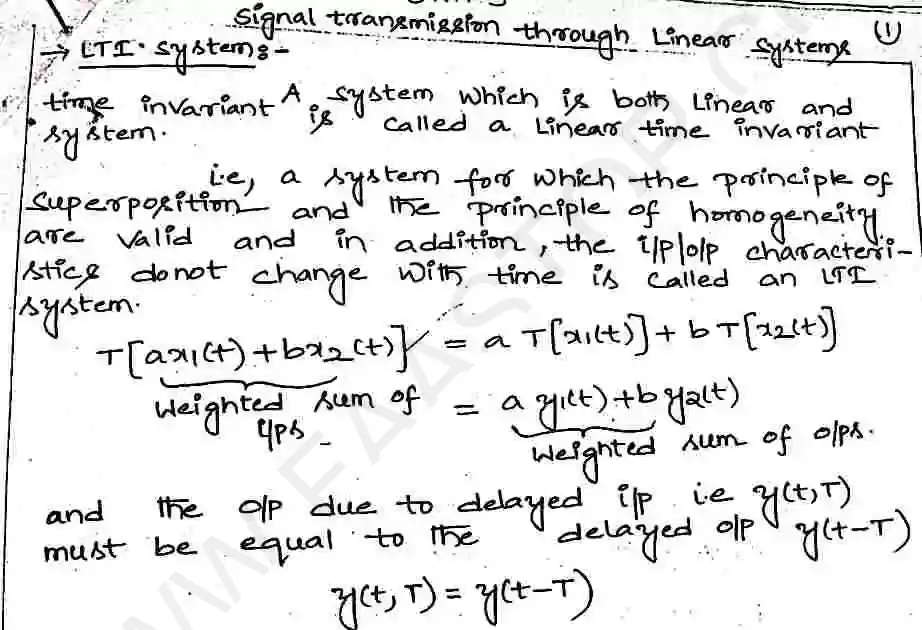 Signal transmission through Linear Systems ①
→ LTI. Systems:-
time invariant A system which is both Linear and
system. is called a Linear time invariant
i.e, a system for which the principle of
superposition and the principle of homogeneity
are valid and in addition, the i/p|o/p characteri-
stics donot change with time is called an LTI
system.
T[ax₁(t) + bx₂(t)] = a T[x₁(t)] + b T[x₂(t)]
Weighted sum of i/ps = a y₁(t) + b y₂(t)
Weighted sum of o/ps.
and the o/p due to delayed i/p i.e y(t,T)
must be equal to the delayed o/p y(t-T)
y(t,T) = y(t-T)